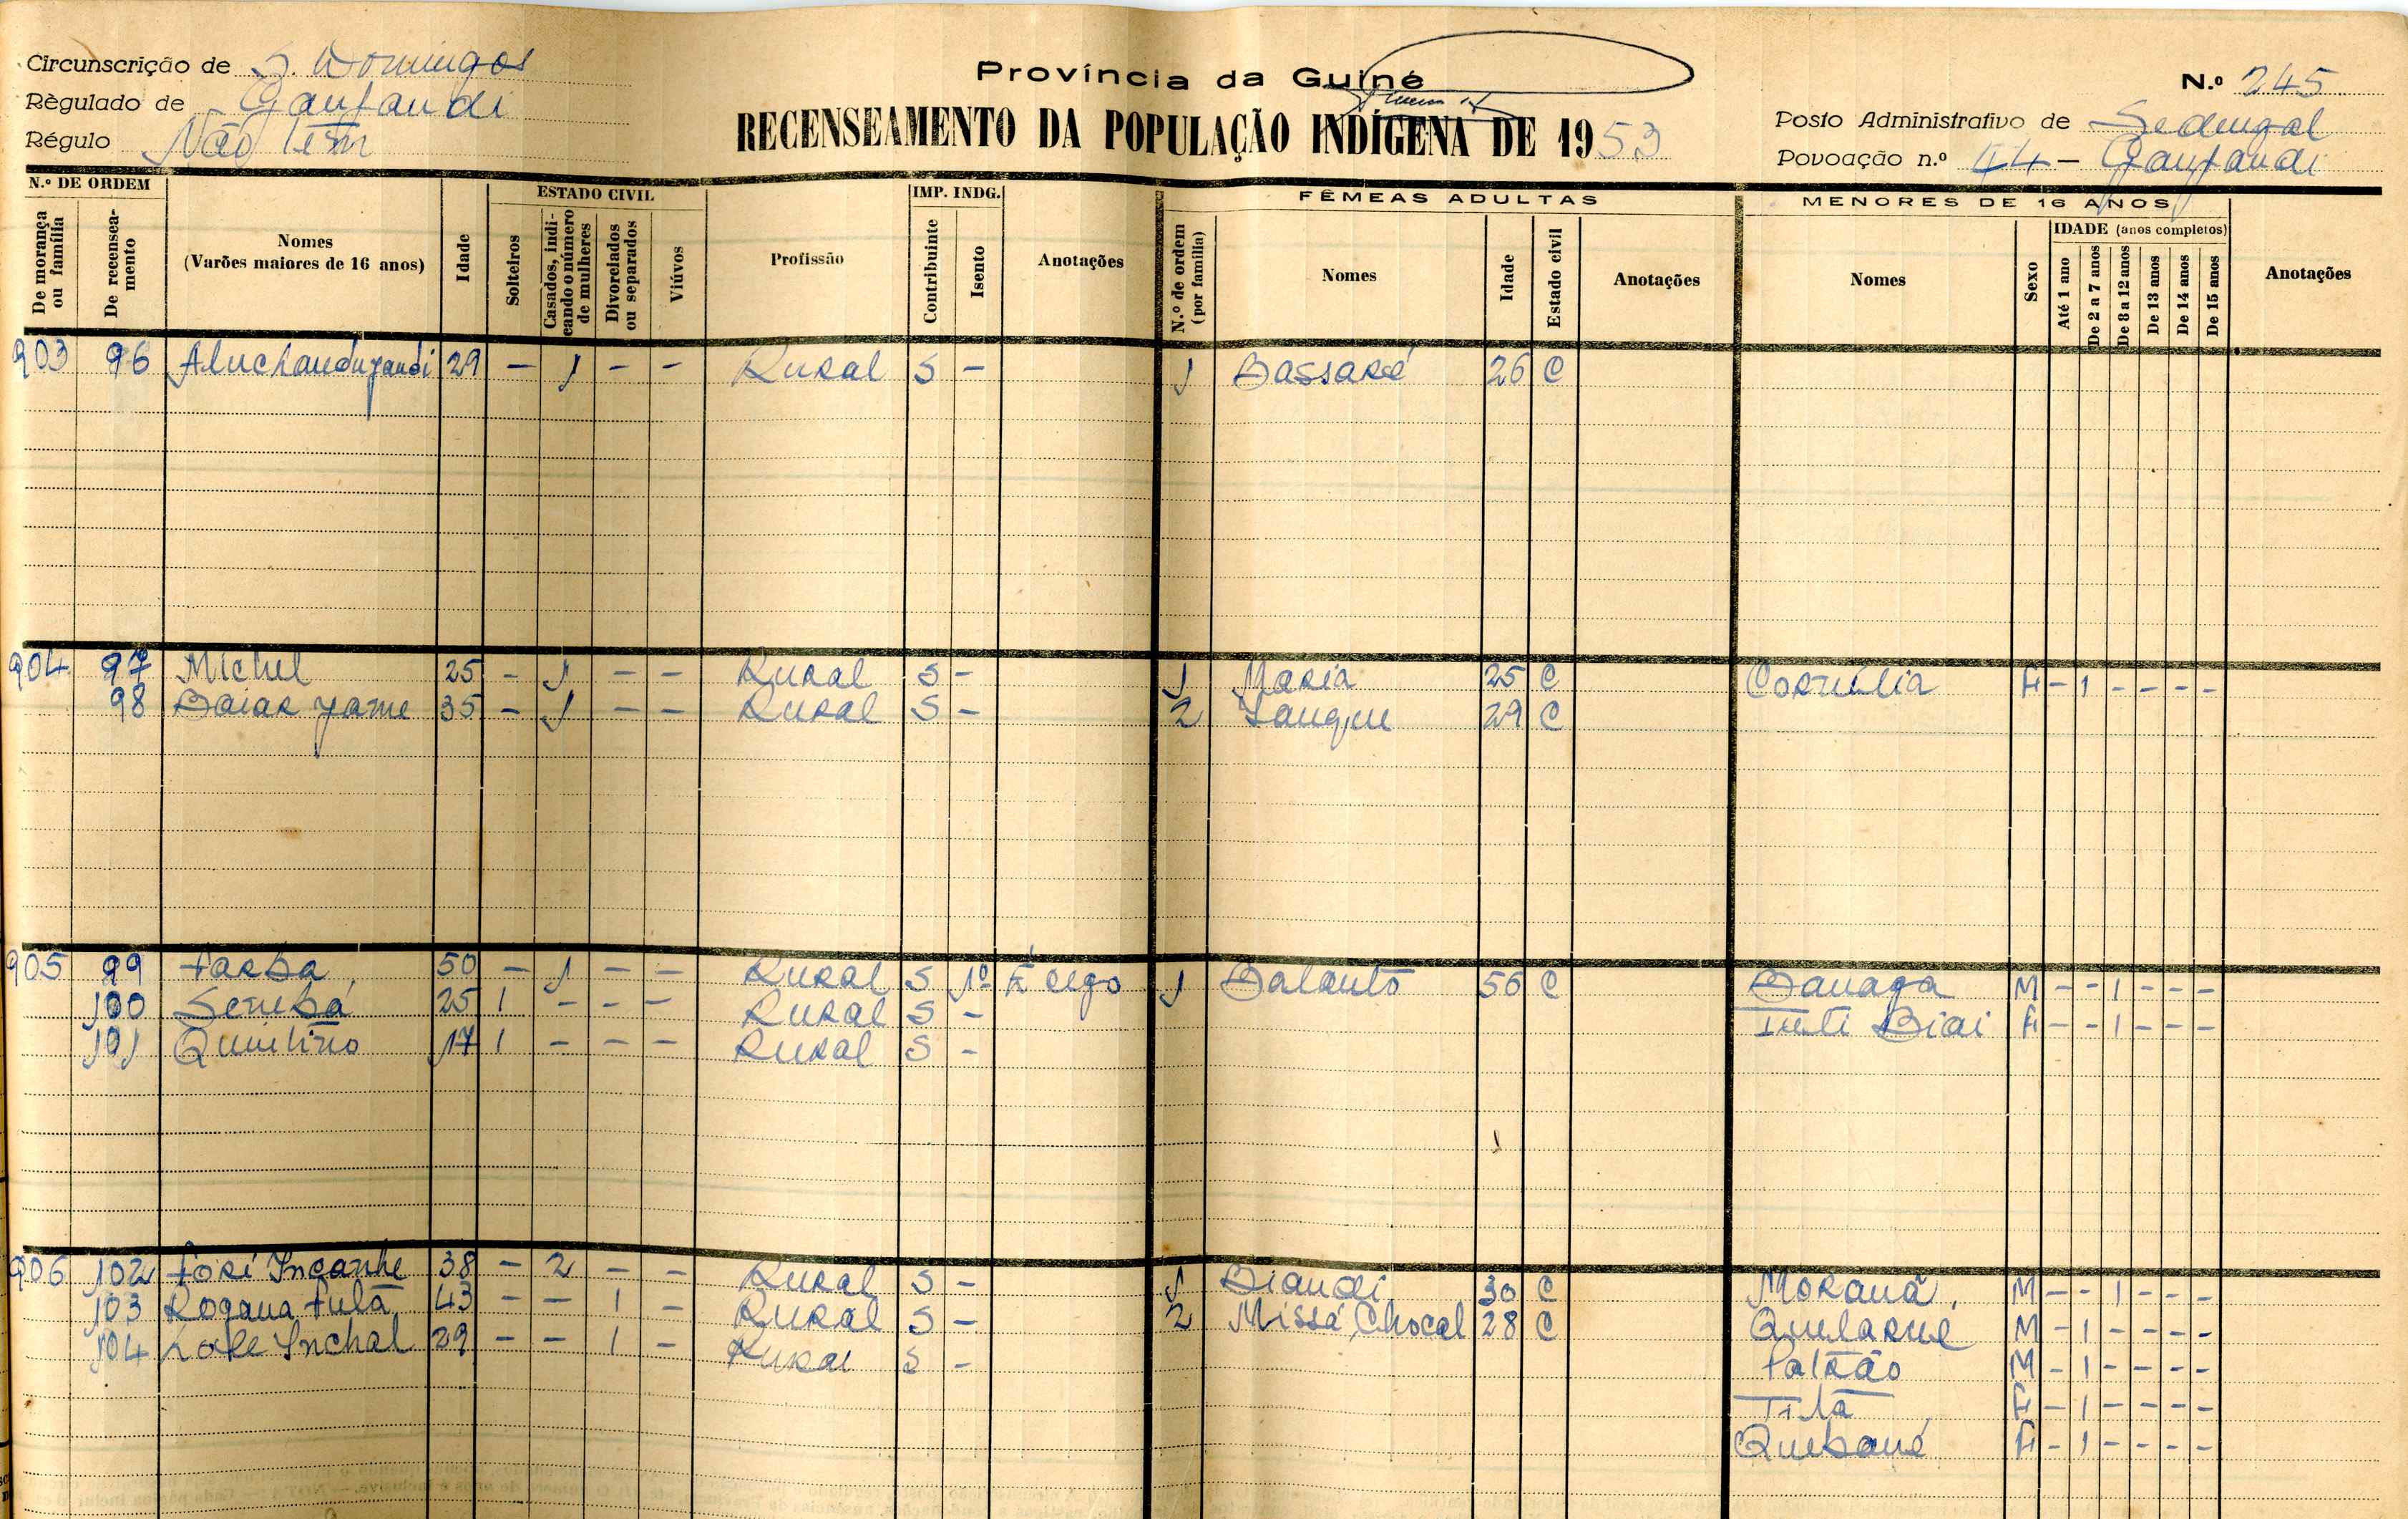 Circunscrição de S. Domingos
Règulado de Ganfandi
Régulo Não Tem
Província da Guiné
RECENSEAMENTO DA POPULAÇÃO INDÍGENA DE 1953
N.º 245
Posto Administrativo de Sedengal
Povoação n.º 44 - Ganfandi
N.º DE ORDEM
De morança ou família
De recenseamento
Nomes
(Varões maiores de 16 anos)
Idade
ESTADO CIVIL
Solteiros
Casados, indicando o número de mulheres
Divorciados ou separados
Viúvos
Profissão
IMP. INDG.
Contribuinte
Isento
Anotações
FÊMEAS ADULTAS
N.º de ordem (por família)
Nomes
Idade
Estado civil
Anotações
MENORES DE 16 ANOS
Nomes
Sexo
IDADE (anos completos)
Até 1 ano
De 2 a 7 anos
De 8 a 12 anos
De 13 anos
De 14 anos
De 15 anos
Anotações
903 96 29 - 1 - - Rural S - 1 Bassaré 26 C
904 97 Michel 25 - 1 - - Rural S - 1 Maria 25 C Cornélia F - 1 - - - -
98 Baiar Jame 35 - 1 - - Rural S - 2 29 C
905 99 50 - 1 - - Rural S É cego 1 Balantó C Banaga M - - 1 - - -
100 25 1 - - - Rural S - Biai F - - 1 - - -
101 Quintino 17 1 - - - Rural S -
906 102 José Incanhe 38 - 2 - - Rural S - 1 Biandi 30 C Moranã M - - 1 - - -
103 43 - - 1 - Rural S - 2 Missá Chocal 28 C M - 1 - - - -
104 Inchal 29 - - 1 - Rural S - M - 1 - - - -
Titã F - 1 - - - -
Quebané F - 1 - - - -